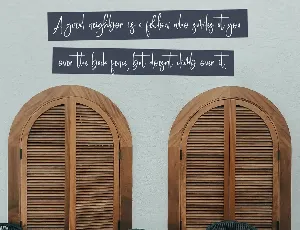 A good neighbor is a fellow who smiles at you
over the back fence, but doesn't climb over it.